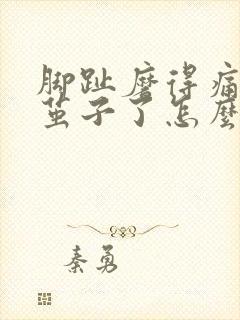 脚趾磨得痛
茧子了怎麽
秦勇